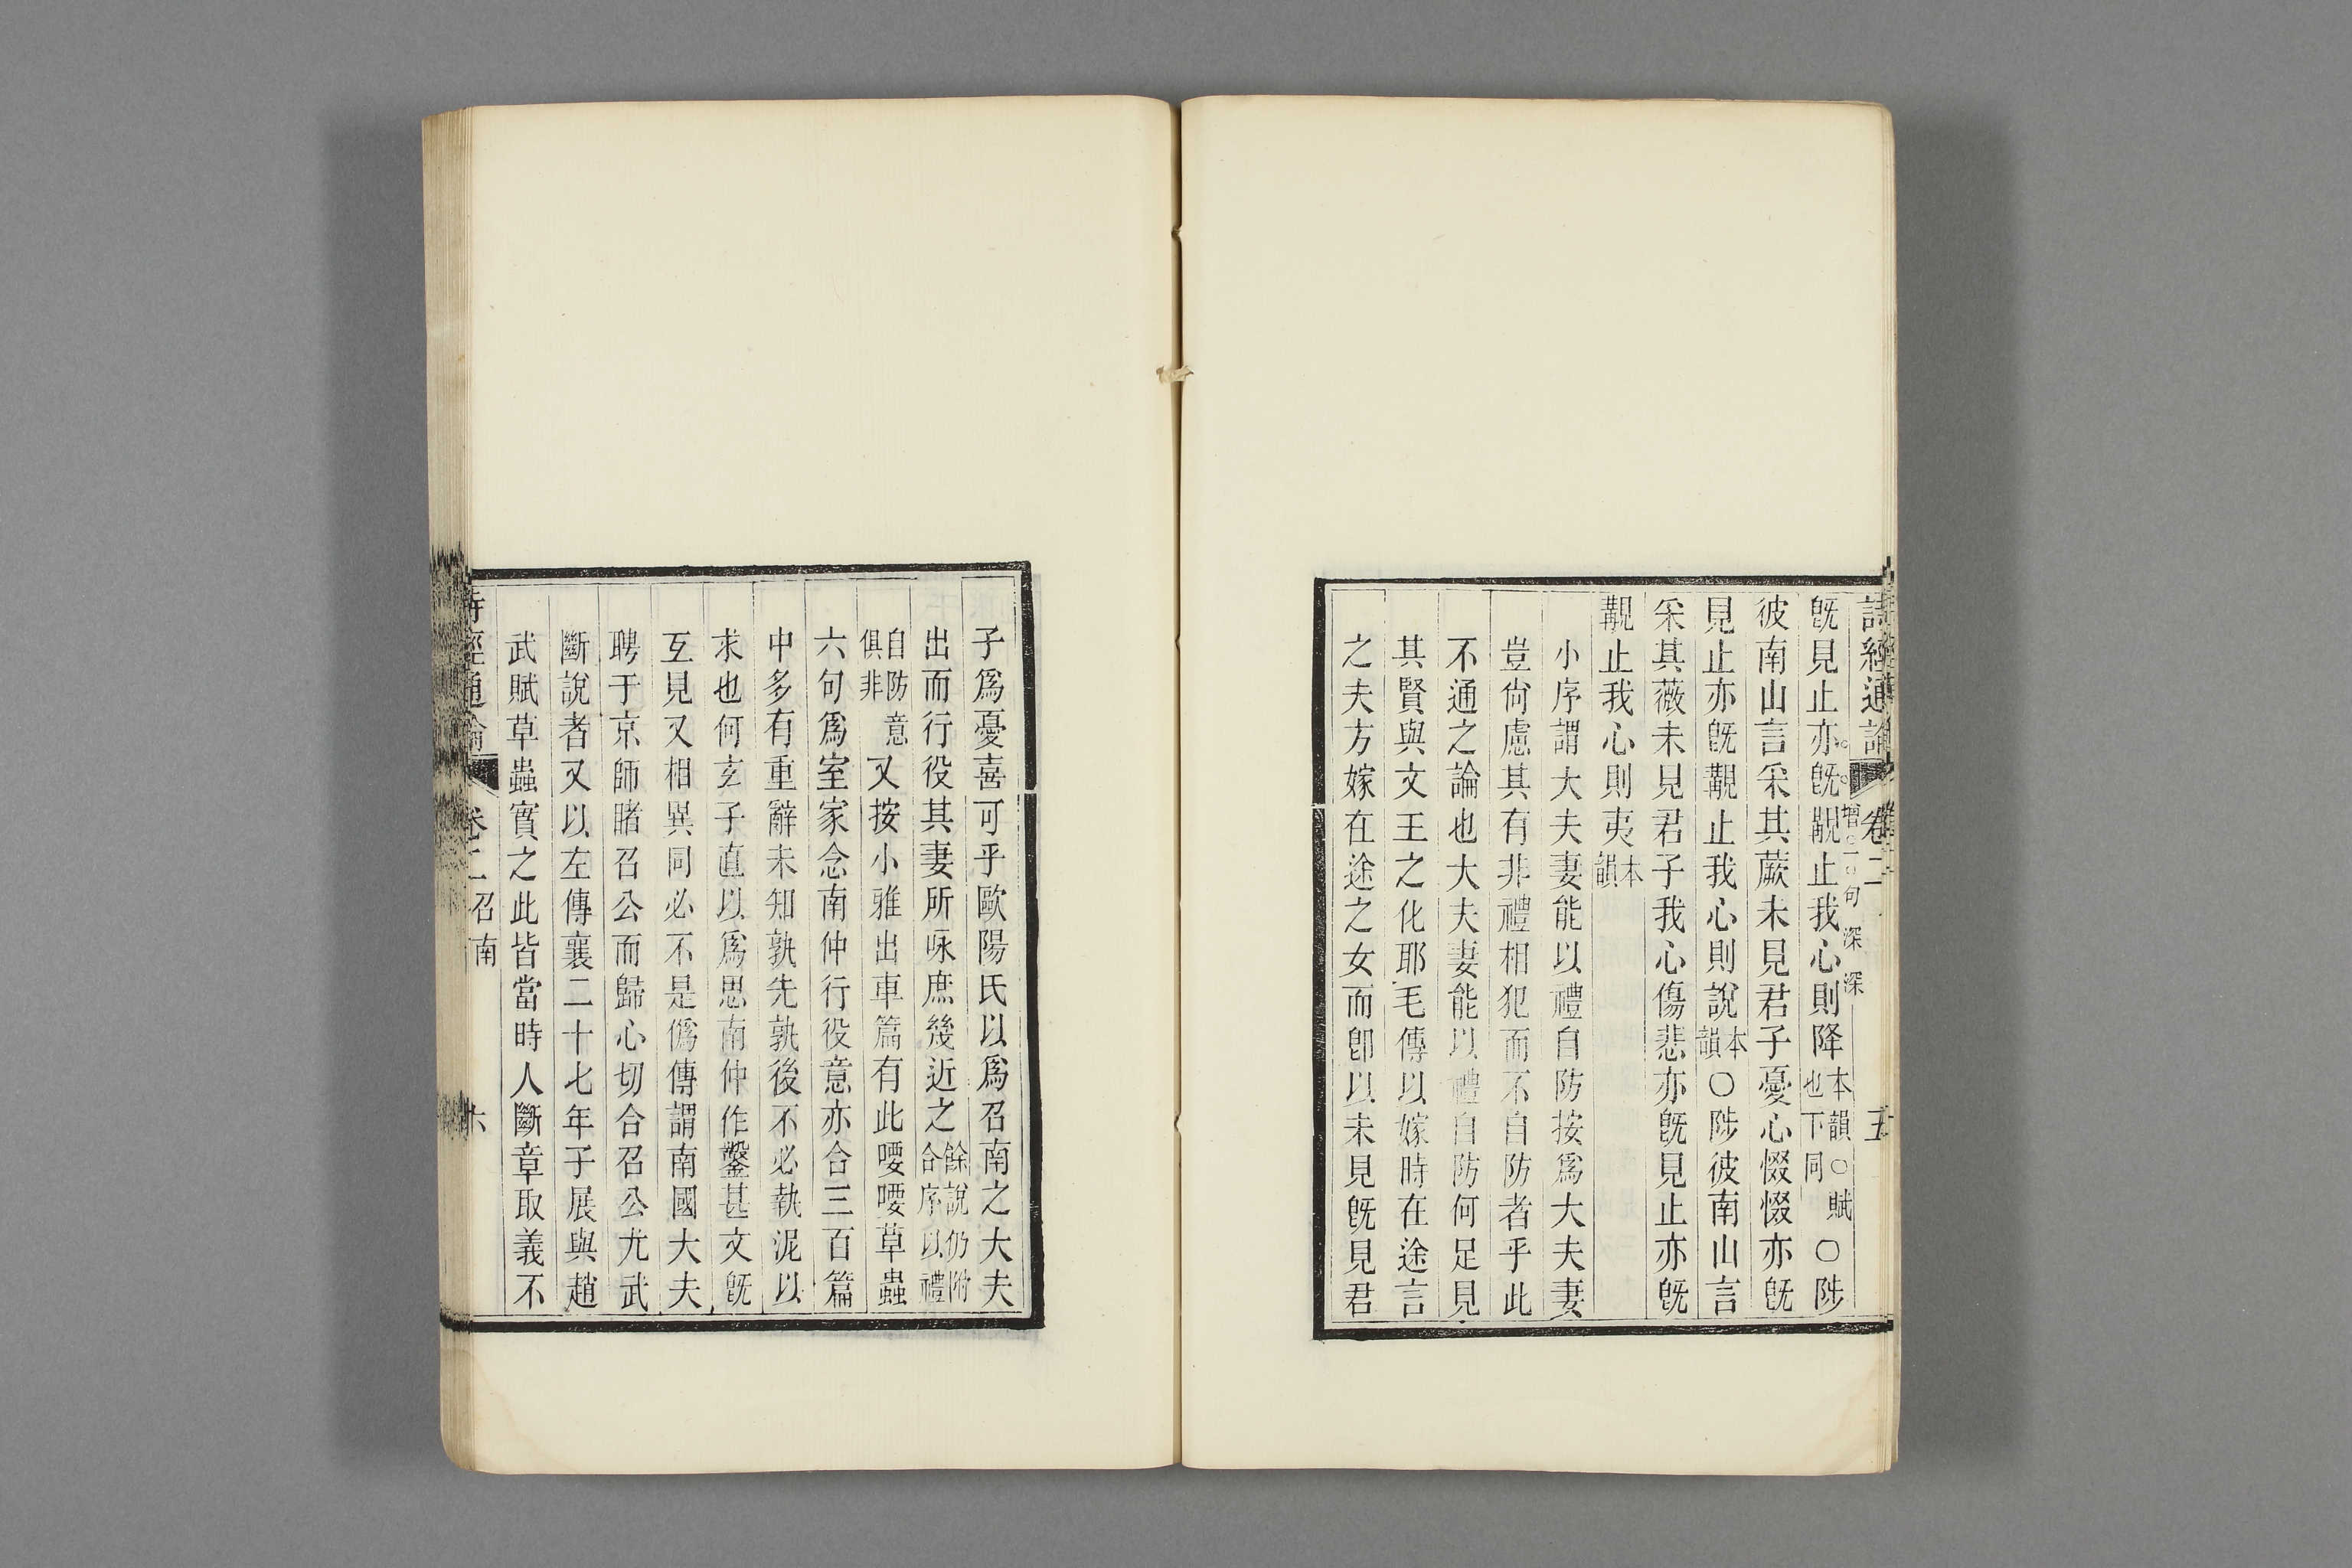 詩經通論 卷二 五
既見止亦既覯止我心則降本韻○賦也下同○陟
增二句深深
彼南山言采其蕨未見君子憂心惙惙亦既
見止亦既覯止我心則說本韻○陟彼南山言
采其薇未見君子我心傷悲亦既見止亦既
覯止我心則夷本韻
小序謂大夫妻能以禮自防按爲大夫妻
豈尙慮其有非禮相犯而不自防者乎此
不通之論也大夫妻能以禮自防何足見
其賢與文王之化耶毛傳以嫁時在途言
之夫方嫁在途之女而卽以未見既見君
子爲憂喜可乎歐陽氏以爲召南之大夫
出而行役其妻所咏庶幾近之餘說仍附合序以禮
自防意俱非又按小雅出車篇有此喓喓草蟲
六句爲室家念南仲行役意亦合三百篇
中多有重辭未知孰先孰後不必執泥以
求也何玄子直以爲思南仲作鑿甚文既
互見又相異同必不是僞傳謂南國大夫
聘于京師睹召公而歸心切合召公尤武
斷說者又以左傳襄二十七年子展與趙
武賦草蟲實之此皆當時人斷章取義不
詩經通論 卷二 召南 六